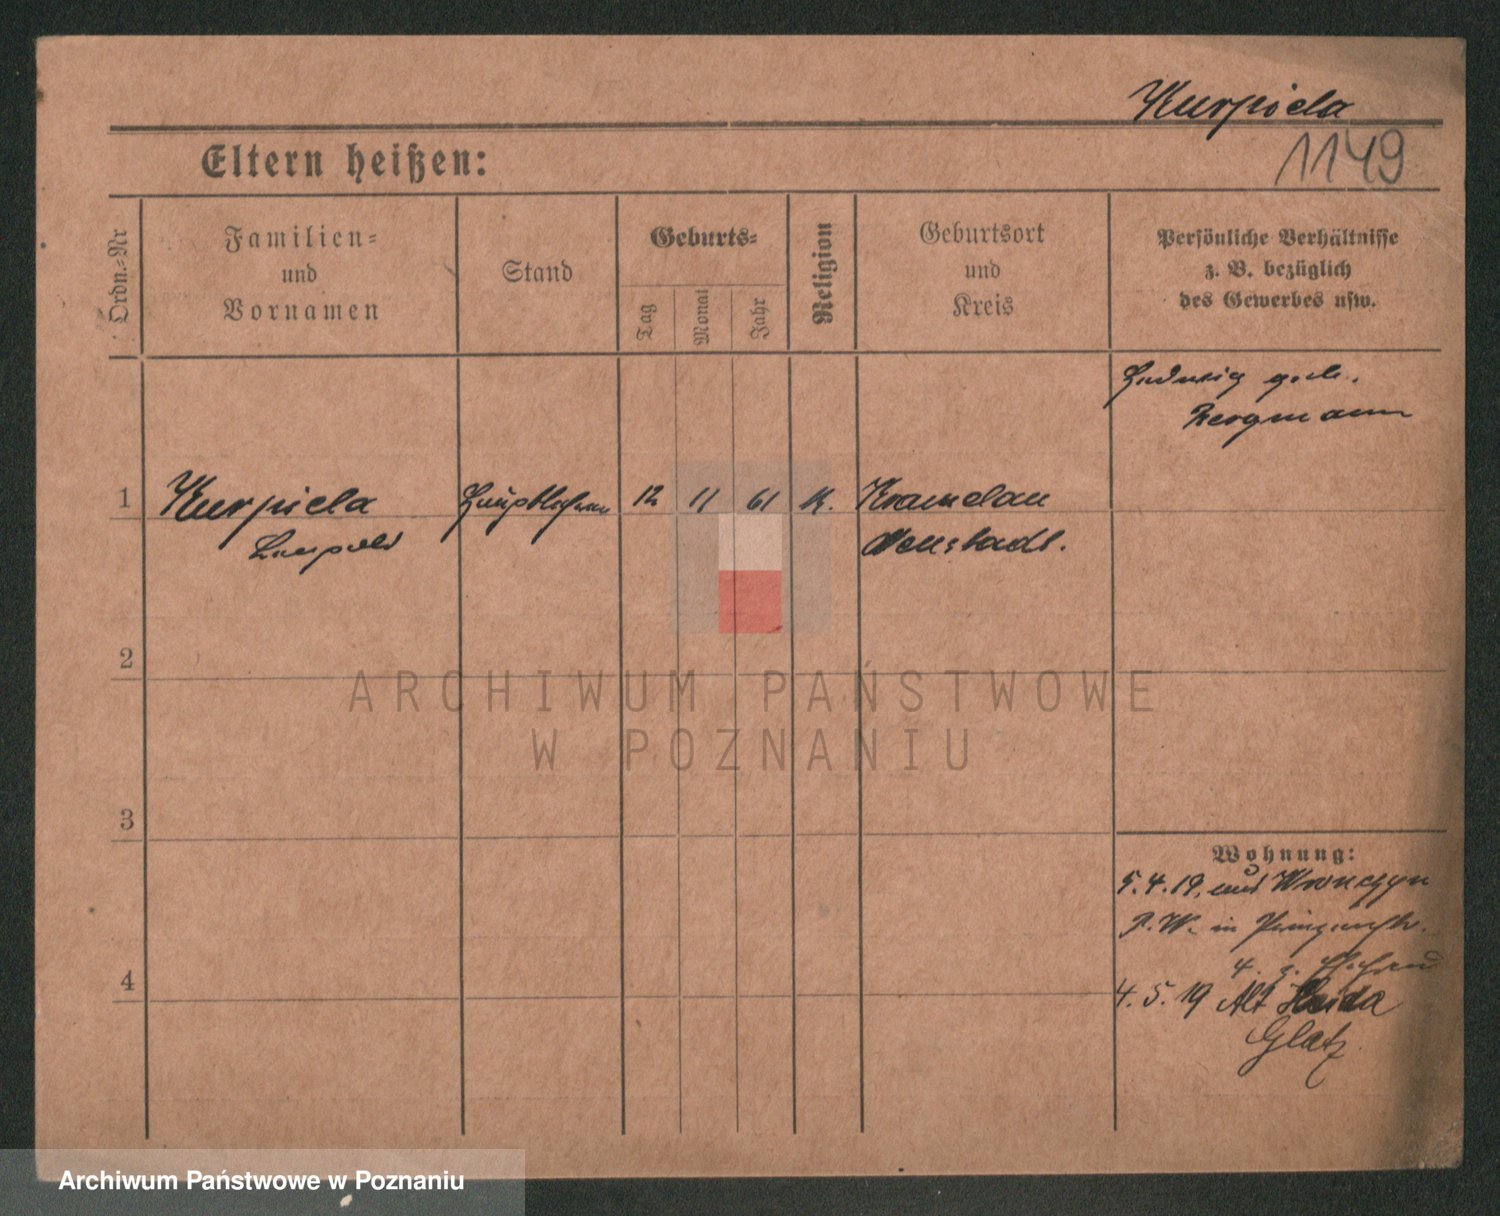 Kurpiela
1149
Eltern heißen:
Ordn.-Nr
Familien-
und
Vornamen
Stand
Geburts-
Tag
Monat
Jahr
Religion
Geburtsort
und
Kreis
Persönliche Verhältnisse
z. B. bezüglich
des Gewerbes usw.
Hedwig geb.
Bergmann
1 Kurpiela 12 11 61 K. Kramelau
Leopold Neustadt.
2
3
4
Wohnung:
5.4.19. aus Wronczyn
P. W. in
4.
4.5.19 Alt Heida
Glatz
ARCHIWUM PAŃSTWOWE
W POZNANIU
Archiwum Państwowe w Poznaniu